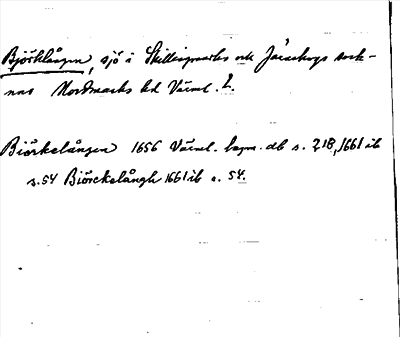 Björklången, sjö i Skillingmarks och Järnskogs sock-
nar Nordmarks hd Värml. L.
Biörkelången 1656 Värml. hspr. db s. 218, 1661 ib
s. 54 Biörckelångh 1661 ib s. 54.